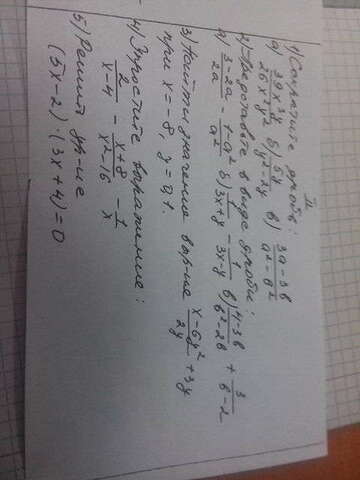 II
1) Сократите дробь:
а) 39x³y / 26x²y² б) 5y / y²-2y в) 3a-3b / a²-b²
2) Представьте в виде дроби:
а) 3-2a / 2a - 1-a² / a² б) 1 / 3x+y - 1 / 3x-y в) 4-3b / b²-2b + 3 / b-2
3) Найти значение выр-ие x-6y² / 2y + 3y
при x=-8, y=0,1.
4) Упростите выражение:
2 / x-4 - x+8 / x²-16 - 1 / x
5) Решить ур-ие
(5x-2)·(3x+4)=0